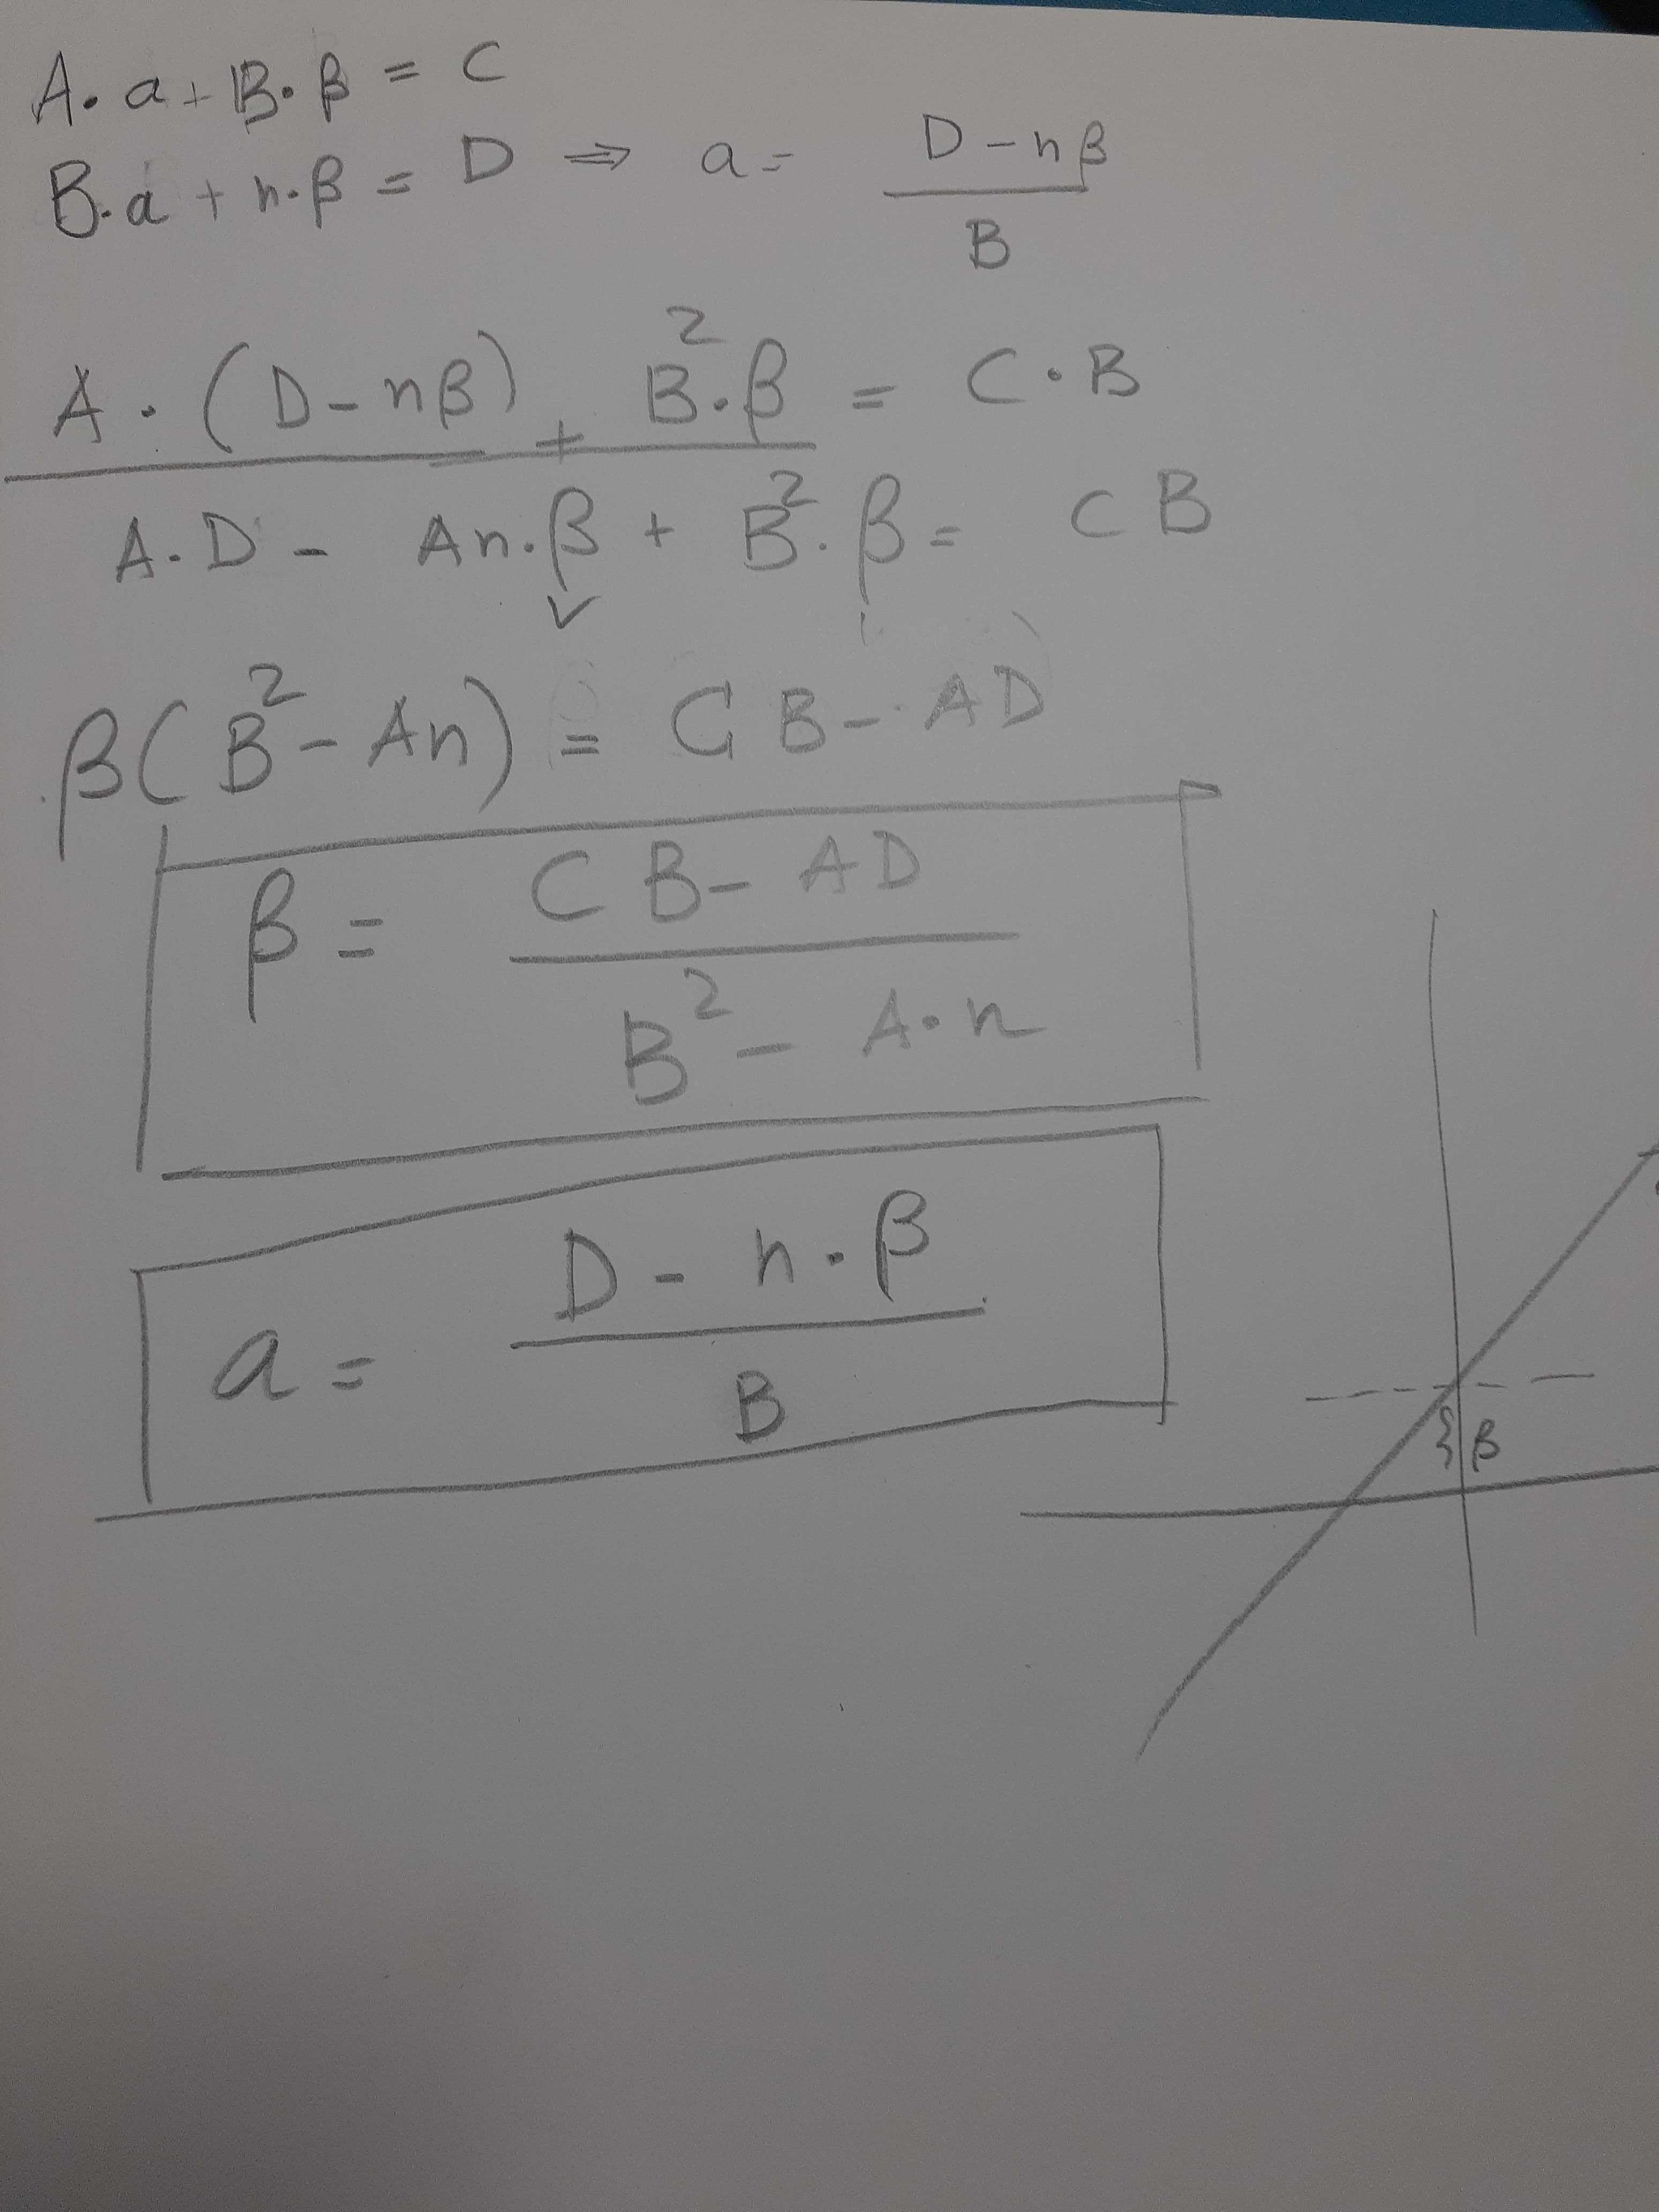 A·a + B·β = C
B·a + n·β = D ⇒ a = (D - nβ)/B
A·(D - nβ) + B²·β = C·B
A·D - An·β + B²·β = CB
β(B² - An) = CB - AD
β = (CB - AD)/(B² - A·n)
a = (D - n·β)/B
β